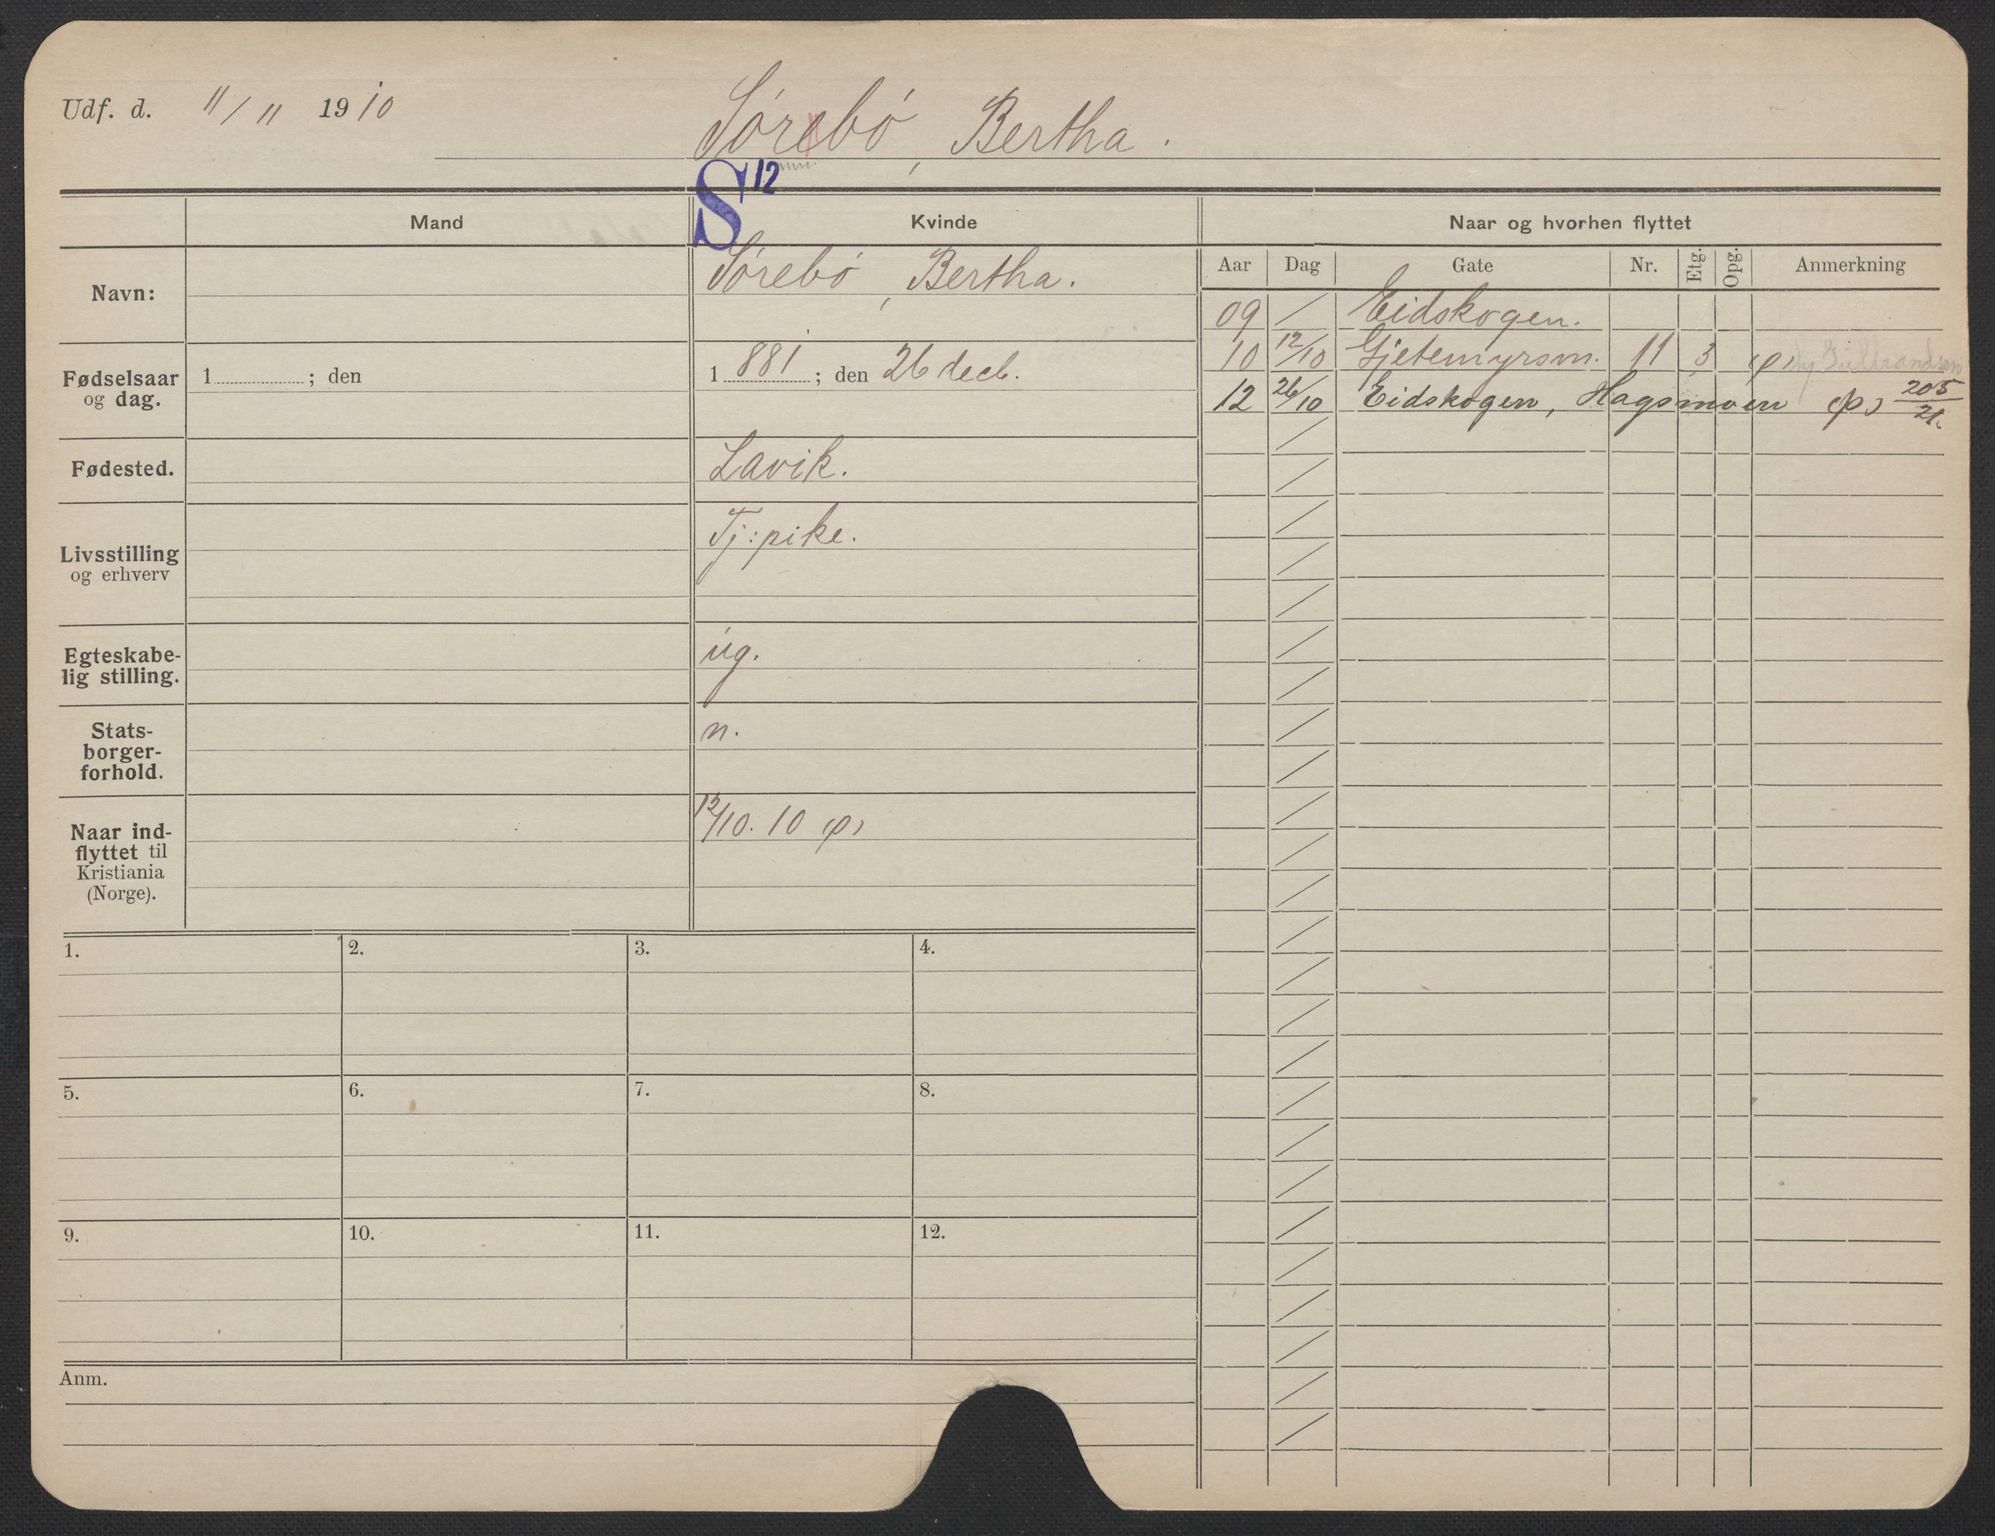 Udf. d. 11/11 1910
Sörebö, Bertha.
S 12
Mand
Kvinde
Naar og hvorhen flyttet
Navn:
Sörebö, Bertha.
Fødselsaar
og dag.
1 ; den
1881; den 26 decb.
Fødested.
Lavik.
Livsstilling
og erhverv
Tj: pike.
Egteskabe-
lig stilling.
ug.
Stats-
borger-
forhold.
n.
Naar ind-
flyttet til
Kristiania
(Norge).
12/10. 10 (p)
Aar Dag Gate Nr. Etg. Opg. Anmerkning
09 / Eidskogen.
10 12/10 Gjetemyrsvn. 11 3 (p)
12 26/10 Eidskogen, Hagsmoen (p) 205/21.
1. 2. 3. 4.
5. 6. 7. 8.
9. 10. 11. 12.
Anm.